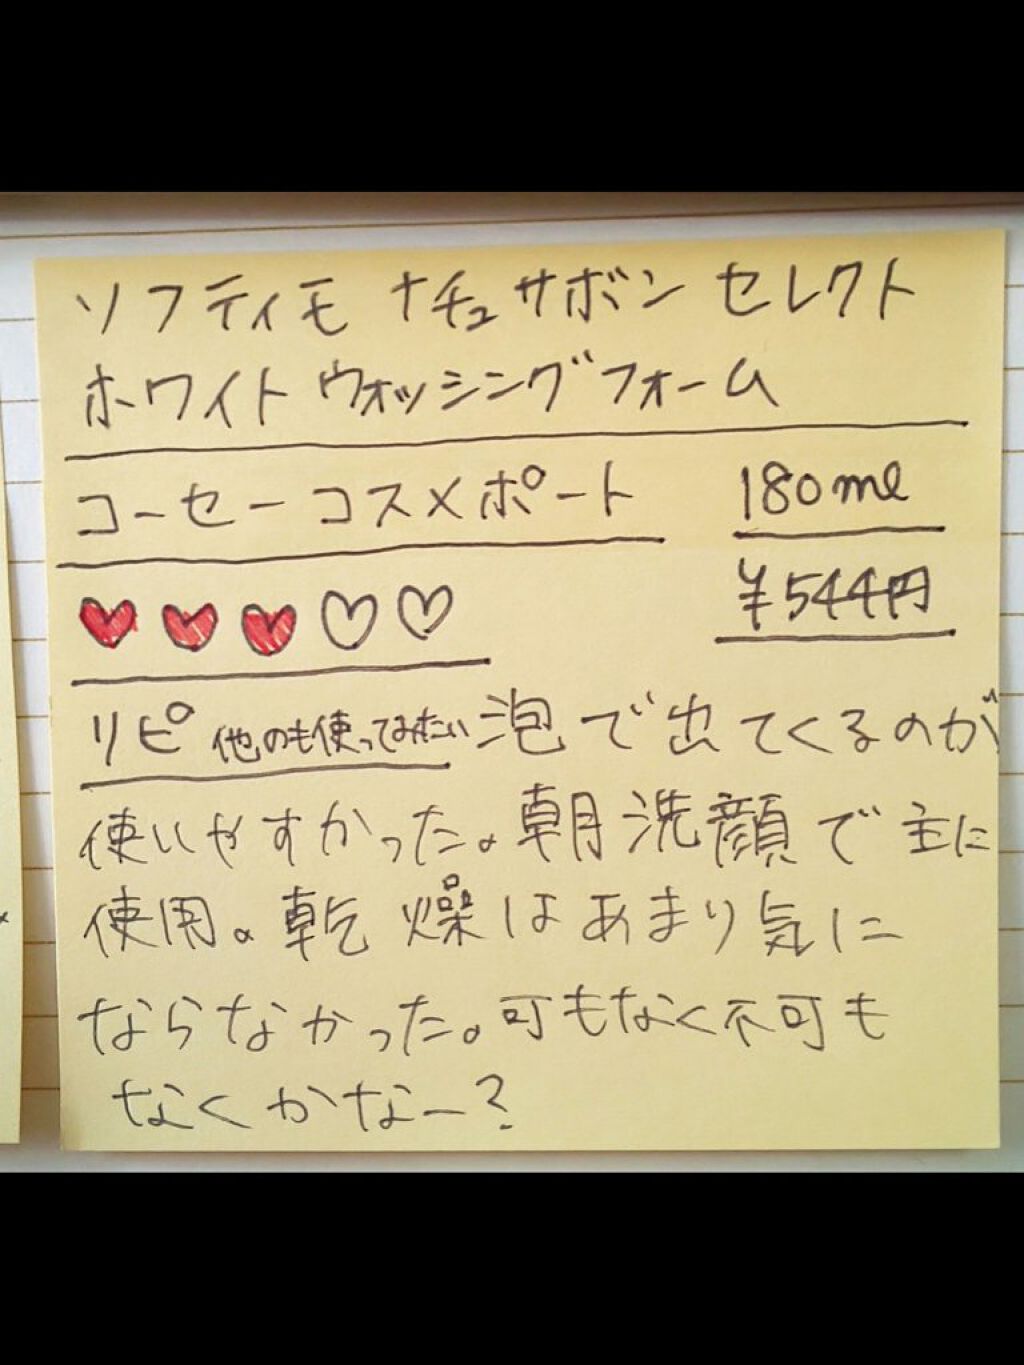 ソフティモ ナチュサボン セレクト
ホワイト ウォッシングフォーム
コーセーコスメポート 180ml
♥♥♥♡♡ ¥544円
リピ 他のも使ってみたい 泡で出てくるのが
使いやすかった。朝洗顔で主に
使用。乾燥はあまり気に
ならなかった。可もなく不可も
なくかなー?